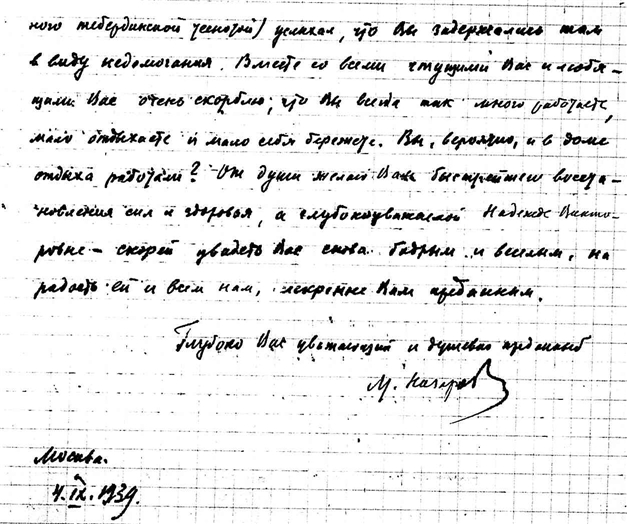 ного тебердинской
услыхал, что Вы задержались там
в виду недомогания. Вместе со всеми чтущими Вас и любя-
щими Вас очень скорблю, что Вы всегда так много работаете,
мало отдыхаете и мало себя бережете. Вы, вероятно, и в доме
отдыха работали? От души желаю Вам быстрейшего восста-
новления сил и здоровья, а глубокоуважаемой Надежде Викто-
ровне – скорей увидеть Вас снова бодрым и веселым, на
радость ей и всем нам, искренне Вам преданным.
Глубоко Вас уважающий и душевно преданный
М.
Москва.
4.IX.1939.